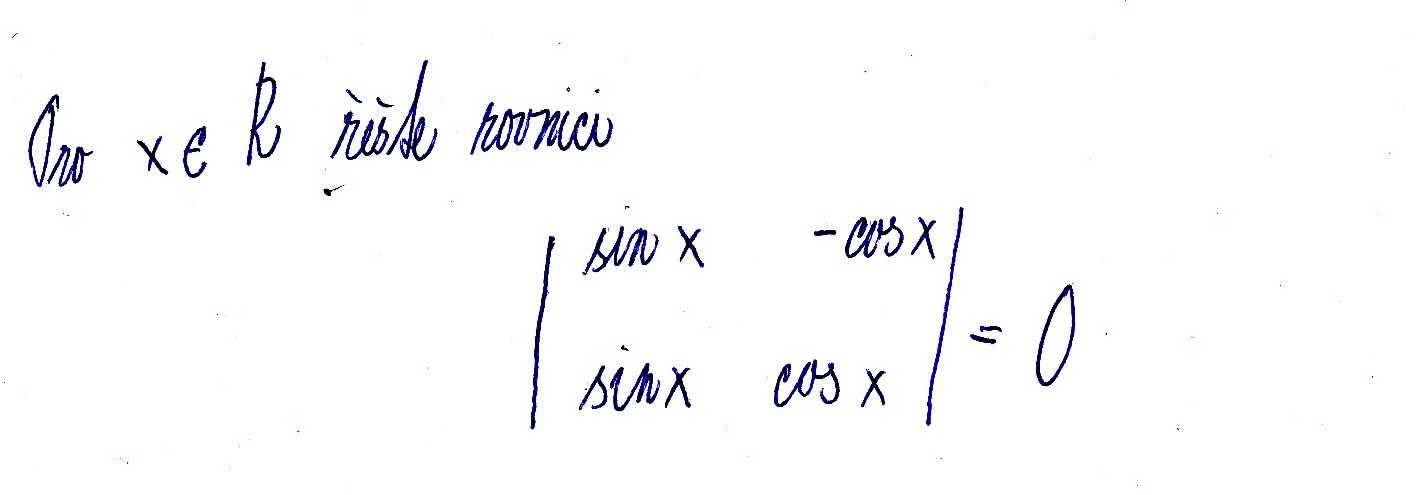 Pro x ∈ R řešte rovnici
| sin x   -cos x |
| sin x   cos x | = 0